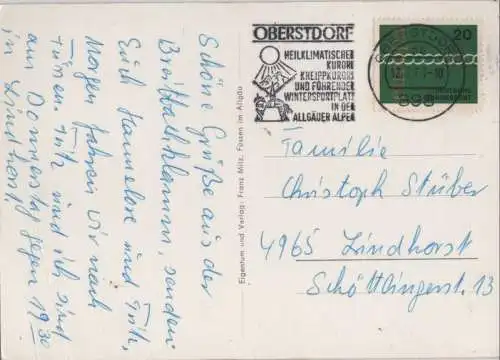 Schöne Grüße aus der
Breitachklamm, senden
Euch Hannelore und Fritz,
Morgen fahren wir nach
Fritz und ich sind
am Donnerstag gegen 19 30
in Lindhorst
Eigentum und Verlag: Franz Milz, Füssen im Allgäu
OBERSTDORF
HEILKLIMATISCHER
KURORT
KNEIPPKURORT
UND FÜHRENDER
WINTERSPORTPLATZ
IN DEN
ALLGÄUER ALPEN
20
DEUTSCHE
BUNDESPOST
898
Familie
Christoph Stüber
4965 Lindhorst
Schöttlingerst. 13